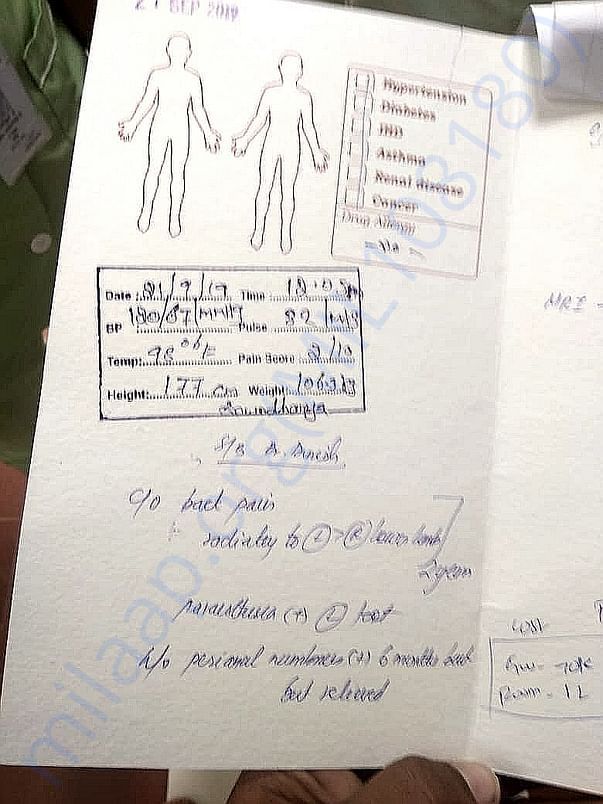 21 SEP 2019
Hypertension
Diabetes
IHD
Asthma
Renal disease
Cancer
Drug Allergy
Date: 21/9/19 Time:
BP mmHg Pulse 82
Temp: 98 °F Pain Score 2/10
Height: 177 cm Weight:
S/B Dr. Dinesh
C/O back pain
radiating to (L) > (R) lower limb
2 years
paraesthesia (+) (L) foot
H/o perianal numbness (+) 6 months back
but relieved
MRI -
70K
1L
milaap.org